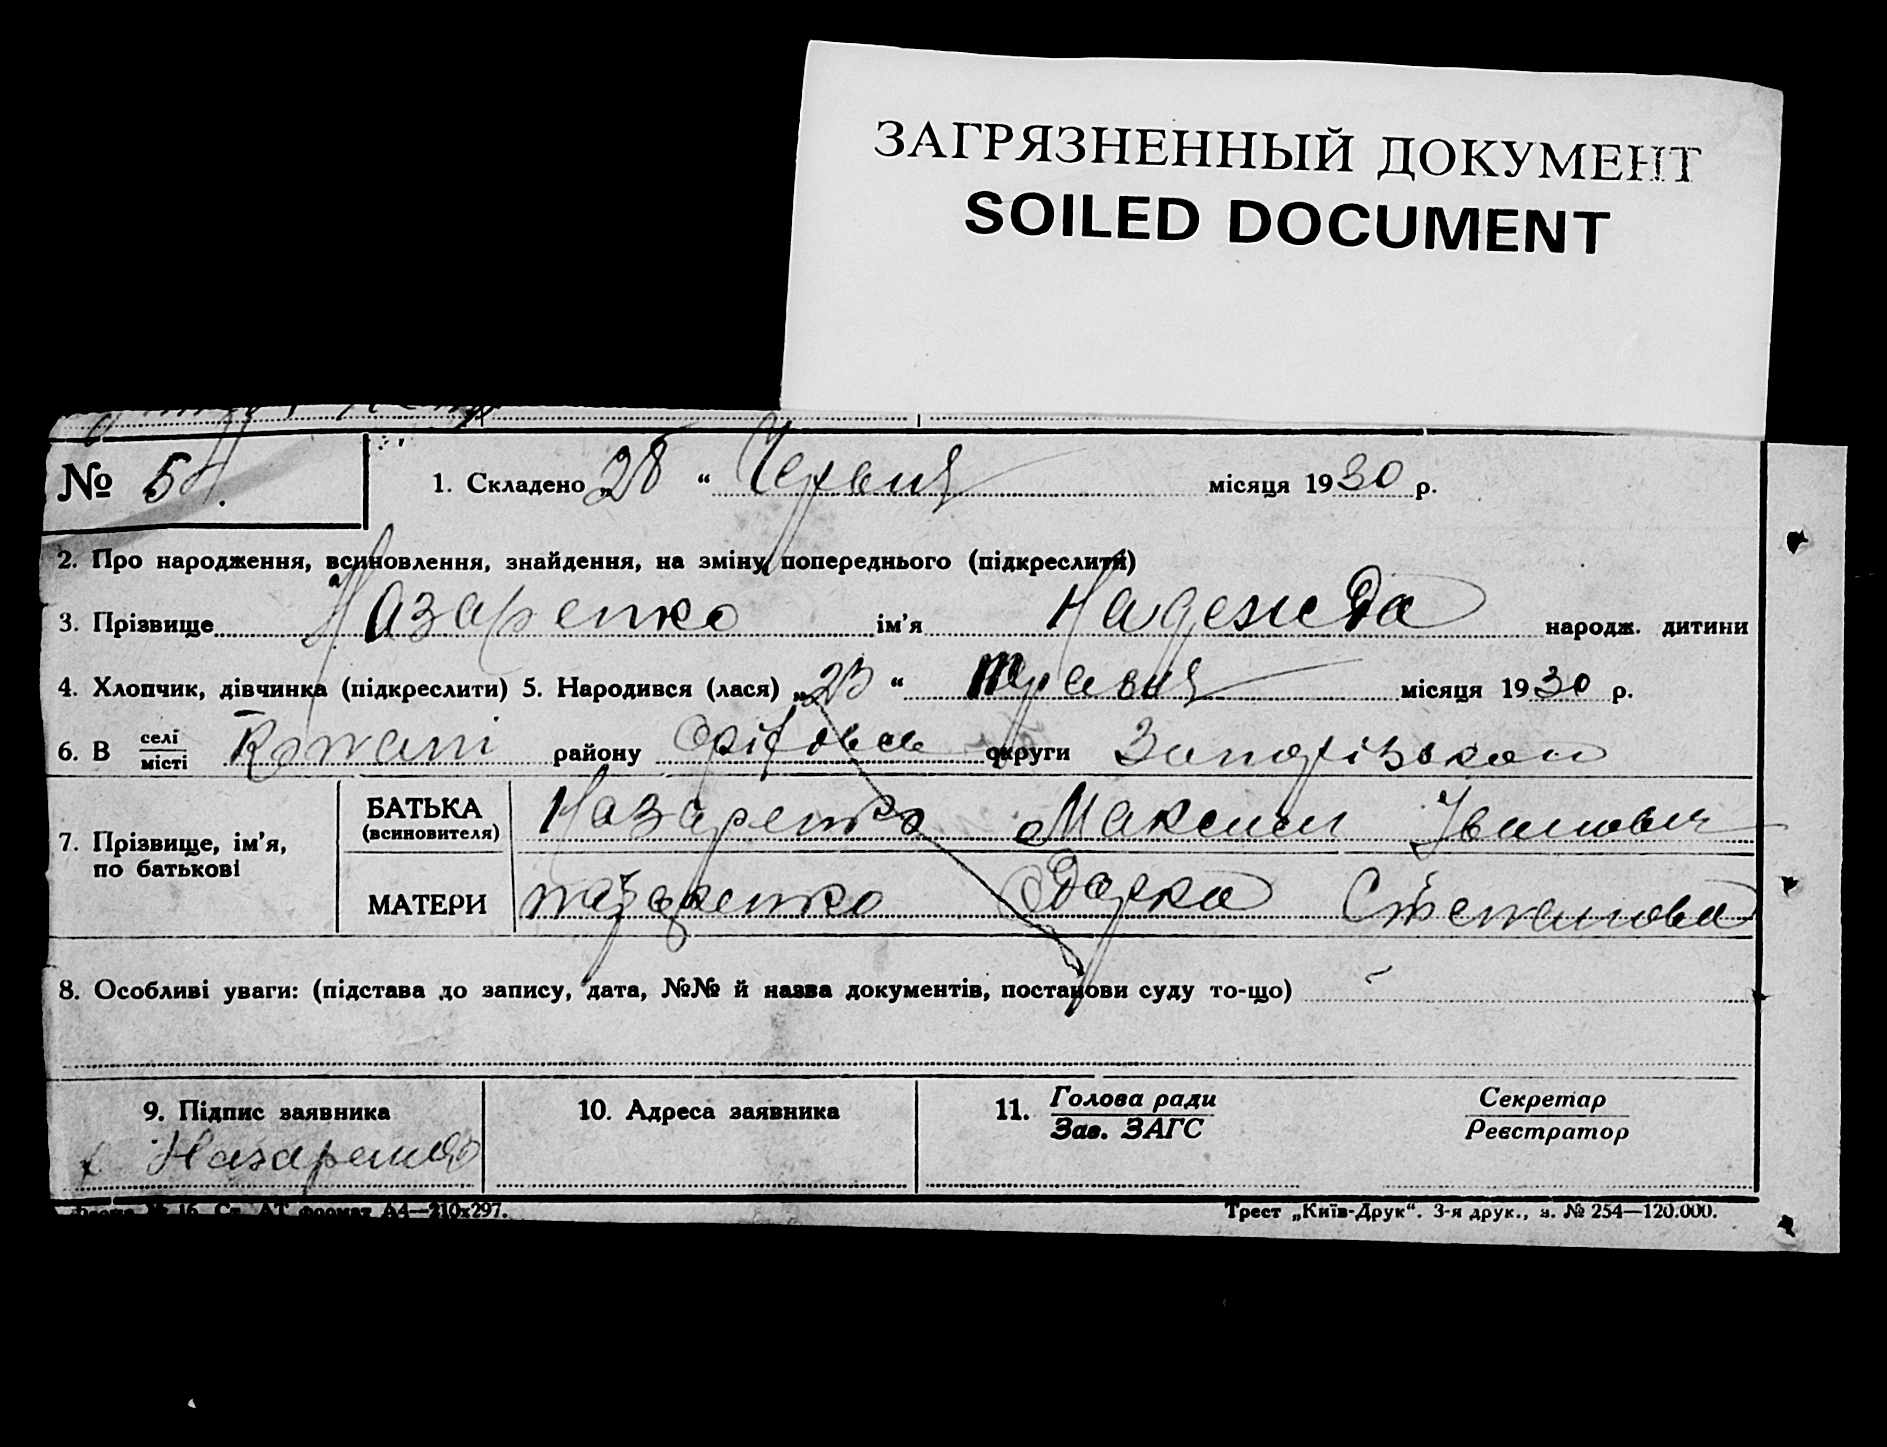 ЗАГРЯЗНЕННЫЙ ДОКУМЕНТ
SOILED DOCUMENT
№ 54.
1. Складено „28“ Червня місяця 1930 р.
2. Про народження, всиновлення, знайдення, на зміну попереднього (підкреслити)
3. Прізвище Назаренко ім'я Надежда народж. дитини
4. Хлопчик, дівчинка (підкреслити) 5. Народився (лася) „23“ Травня місяця 1930 р.
6. В селі місті Копані району Оріхівськ округи Запорізької
7. Прізвище, ім'я, по батькові
БАТЬКА (всиновителя) Назаренко Максим Іванович
МАТЕРИ Назаренко Одарка Степановна
8. Особливі уваги: (підстава до запису, дата, №№ й назва документів, постанови суду то-що) -
9. Підпис заявника 10. Адреса заявника 11. Голова ради Зав. ЗАГС Секретар Реєстратор
Назаренко
Форма № 16. Ст. АТ формат А4—210х297. Трест „Київ-Друк“. 3-я друк., з. № 254—120.000.